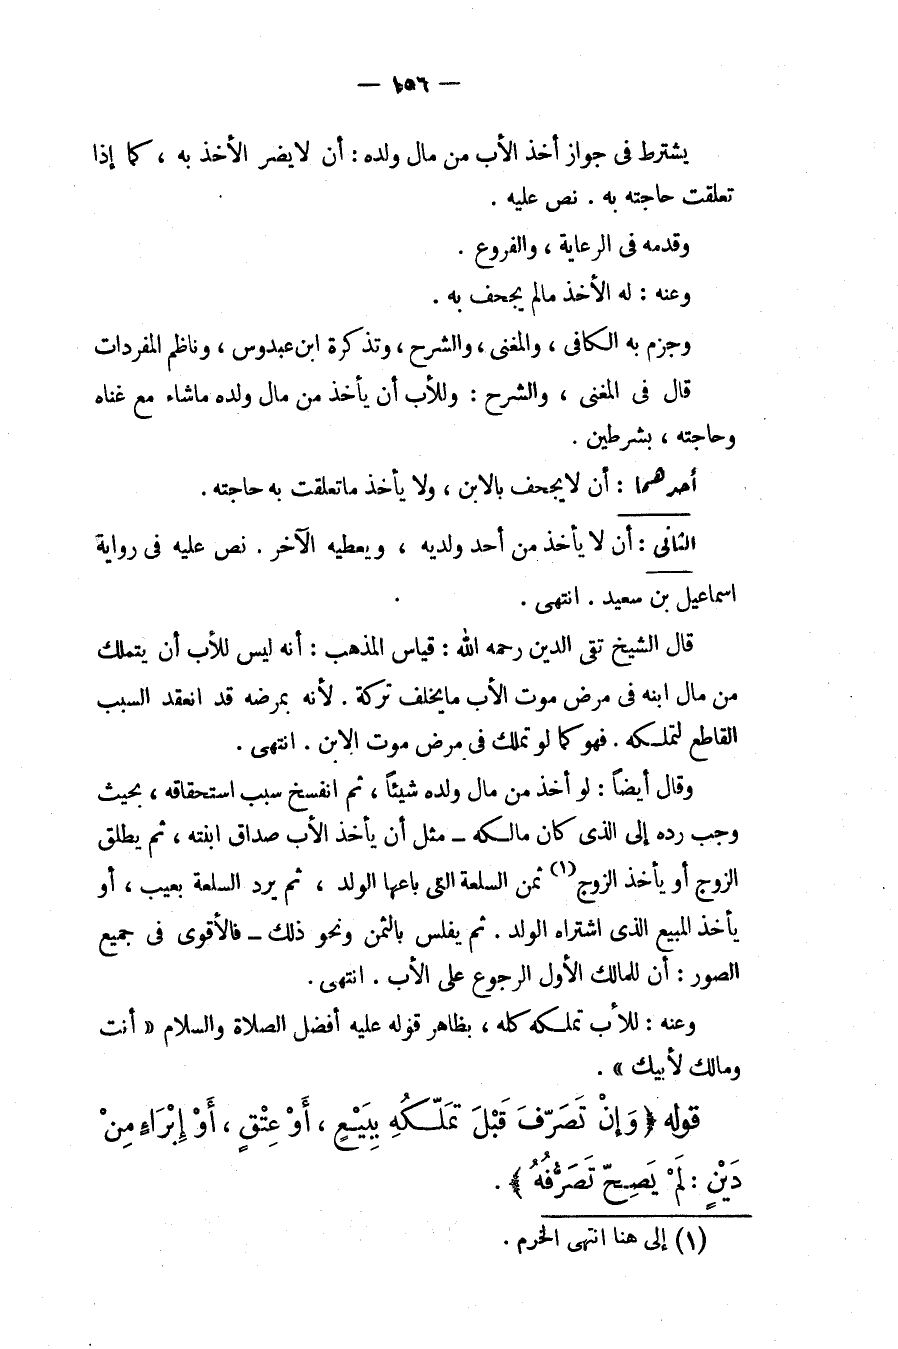 — ١٥٦ —
يشترط فى جواز أخذ الأب من مال ولده : أن لا يضر الأخذ به ، كما إذا
تعلقت حاجته به . نص عليه .
وقدمه فى الرعاية ، والفروع .
وعنه : له الأخذ مالم يجحف به .
وجزم به الكافى ، والمغنى ، والشرح ، وتذكرة ابن عبدوس ، وناظم المفردات
قال فى المغنى ، والشرح : وللأب أن يأخذ من مال ولده ماشاء مع غناه
وحاجته ، بشرطين .
أحدهما : أن لايجحف بالابن ، ولا يأخذ ماتعلقت به حاجته .
الثانى : أن لا يأخذ من أحد ولديه ، ويعطيه الآخر . نص عليه فى رواية
اسماعيل بن سعيد . انتهى .
قال الشيخ تقى الدين رحمه الله : قياس المذهب : أنه ليس للأب أن يتملك
من مال ابنه فى مرض موت الأب مايخلف تركة . لأنه بمرضه قد انعقد السبب
القاطع لتملكه . فهو كما لو تملك فى مرض موت الابن . انتهى .
وقال أيضاً : لو أخذ من مال ولده شيئاً ، ثم انفسخ سبب استحقاقه ، بحيث
وجب رده إلى الذى كان مالكه ــ مثل أن يأخذ الأب صداق ابنته ، ثم يطلق
الزوج أو يأخذ الزوج(١) ثمن السلعة التى باعها الولد ، ثم يرد السلعة بعيب ، أو
يأخذ المبيع الذى اشتراه الولد . ثم يفلس بالثمن ونحو ذلك ــ فالأقوى فى جميع
الصور : أن للمالك الأول الرجوع على الأب . انتهى .
وعنه : للأب تملكه كله ، بظاهر قوله عليه أفضل الصلاة والسلام « أنت
ومالك لأبيك » .
قوله ﴿ وَإِنْ تَصَرَّفَ قَبْلَ تَمَلُّكِهِ بِبَيْعٍ ، أَوْ عِتْقٍ ، أَوْ إِبْرَاءٍ مِنْ
دَيْنٍ : لَمْ يَصِحَّ تَصَرُّفُهُ ﴾ .
(١) إلى هنا انتهى الخرم .